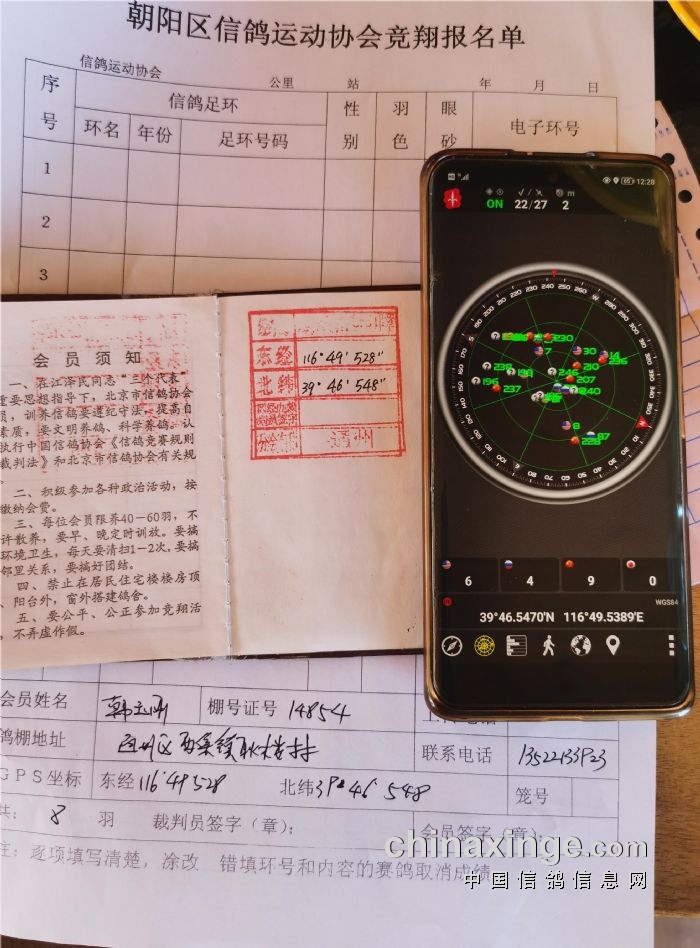 朝阳区信鸽运动协会竞翔报名单
信鸽运动协会 公里 站 年 月 日
序号 信鸽足环 性别 羽色 眼砂 电子环号
环名 年份 足环号码
1
2
3
会员须知
一、在江泽民同志“三个代表”
重要思想指导下，北京市信鸽协会
员，训养信鸽要遵纪守法，提高自
素质，要文明养鸽、科学养鸽。认
执行中国信鸽协会《信鸽竞赛规则
裁判法》和北京市信鸽协会有关规
二、积极参加各种政治活动，按
缴纳会费。
三、每位会员限养40—60羽，不
许散养，要早、晚定时训放。要搞
环境卫生，每天要清扫1—2次。要搞
邻里关系，要搞好团结。
四、禁止在居民住宅楼楼房顶
、阳台外，窗外搭建鸽舍。
五、要公平、公正参加竞翔活
，不弄虚作假。
东经 116°49′528″
北纬 39°46′548″
通州
12:28
ON 22/27 2
m
6 4 9 0
WGS84
39°46.5470'N 116°49.5389'E
会员姓名 棚号证号 14854
鸽棚地址 联系电话
GPS坐标 东经116°49′528 北纬39°46′548 笼号
共：8 羽 裁判员签字（章）： 会员签字（章）：
注：逐项填写清楚，涂改 错填环号和内容的赛鸽取消成绩
chinaxinge.com
中国信鸽信息网